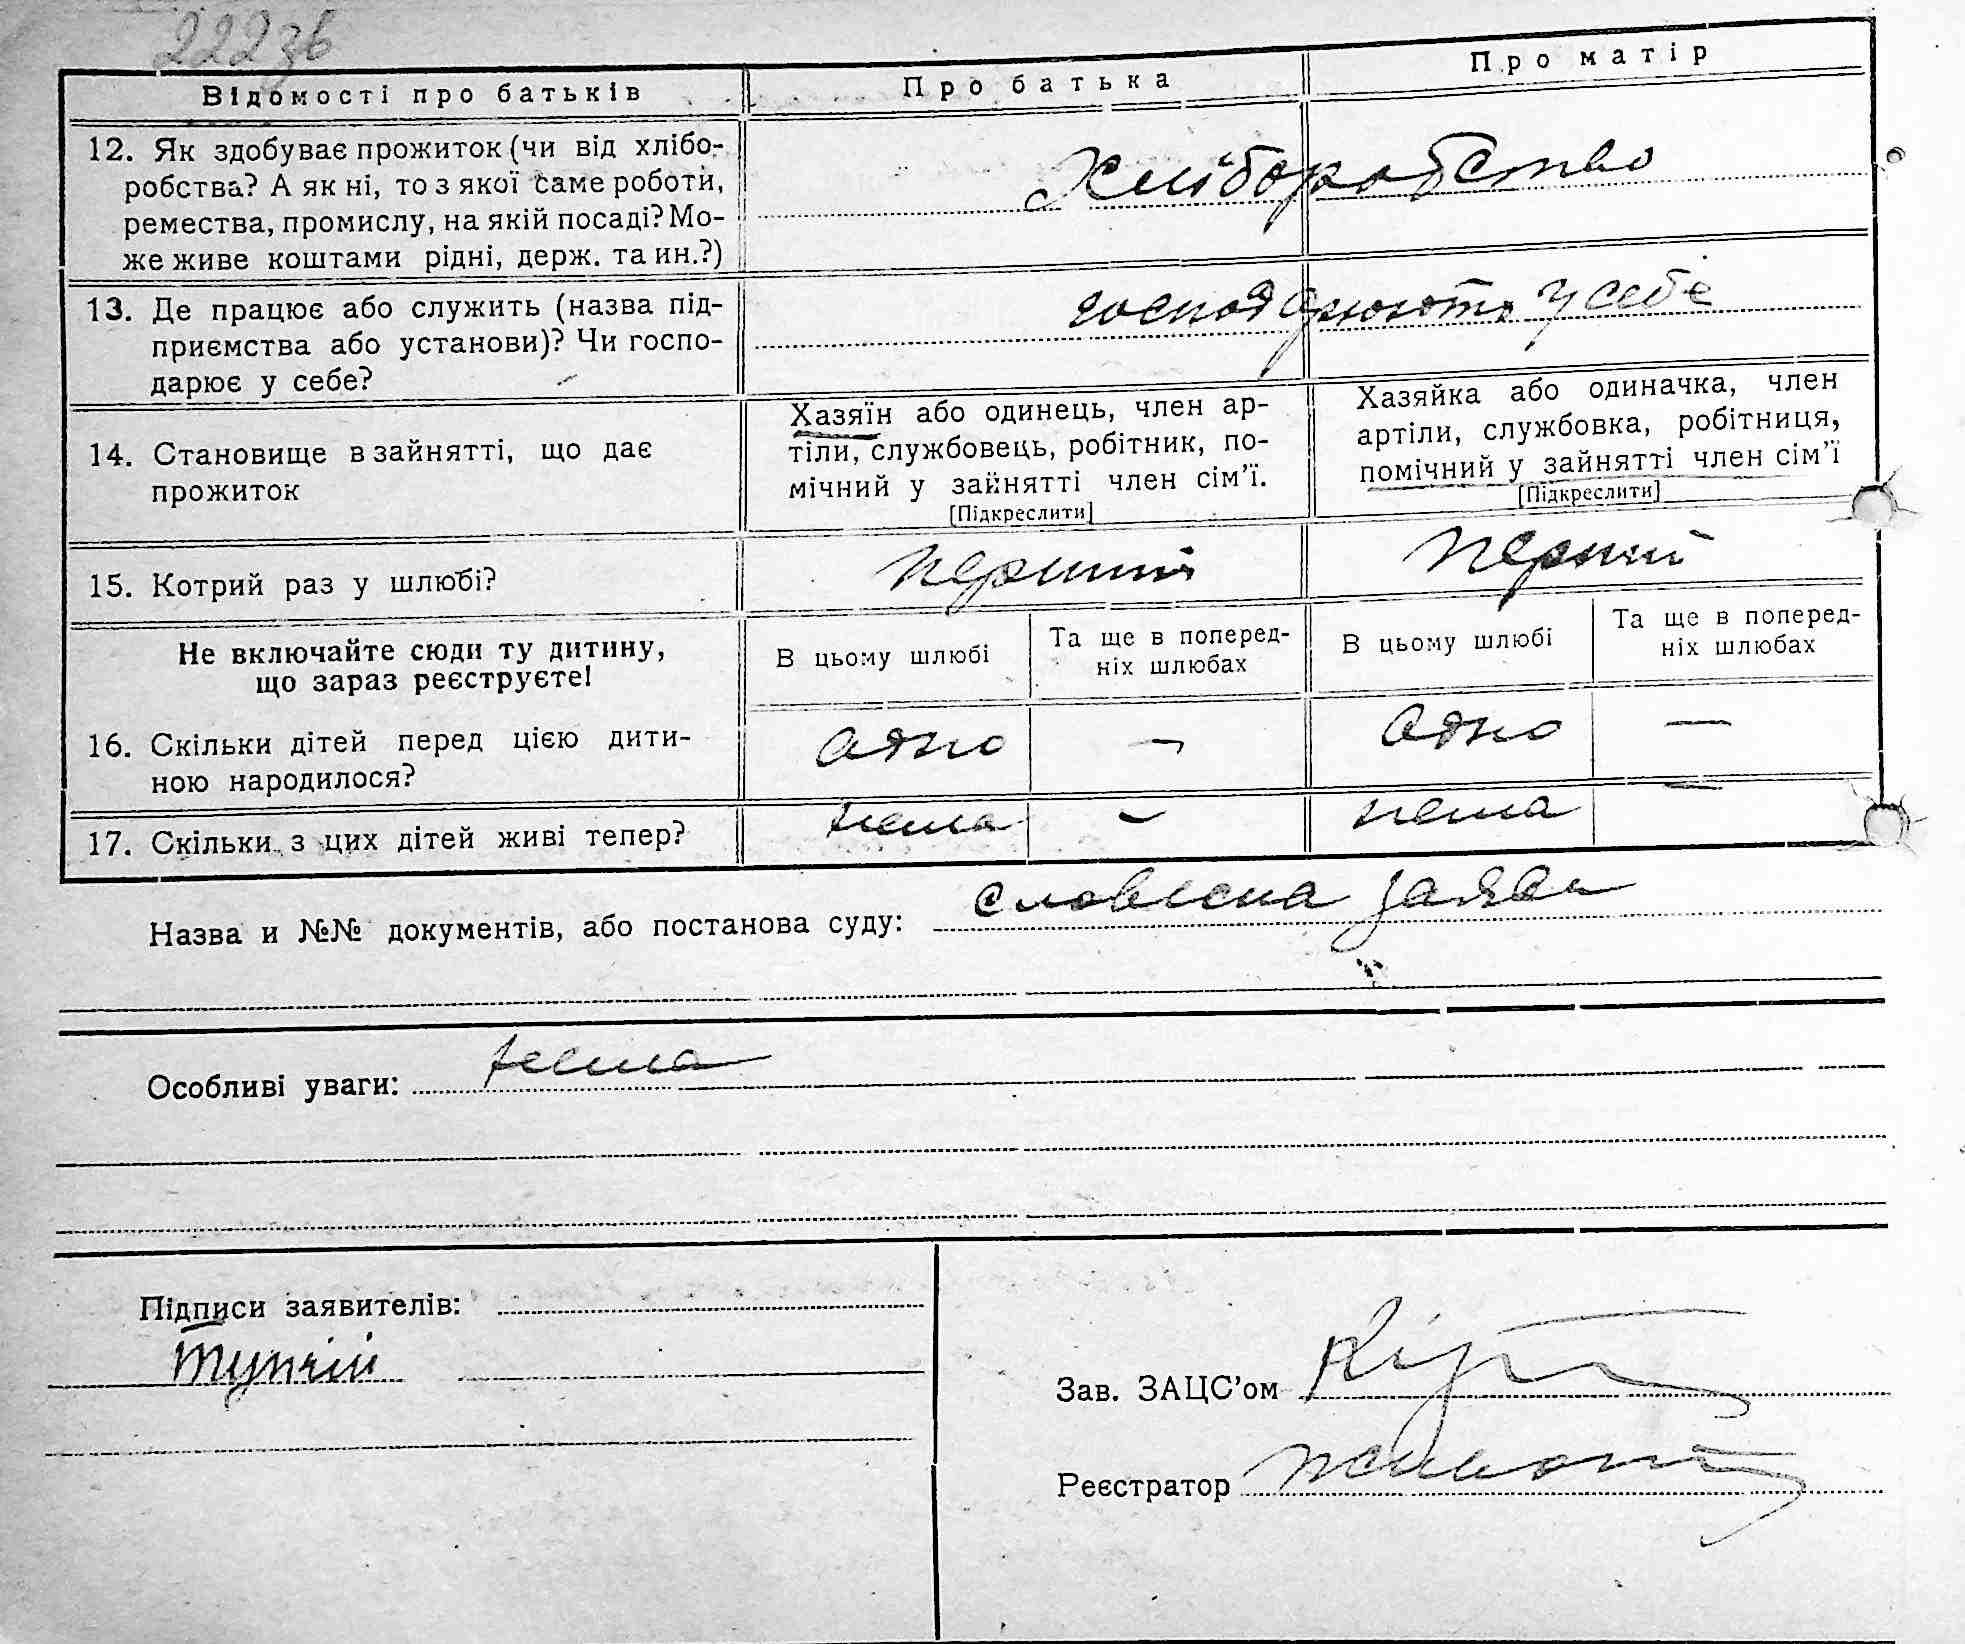 222зв
Відомості про батьків
Про батька
Про матір
12. Як здобуває прожиток (чи від хлібо-
робства? А як ні, то з якої саме роботи,
ремества, промислу, на якій посаді? Мо-
же живе коштами рідні, держ. та ин.?)
Хліборобство
13. Де працює або служить (назва під-
приємства або установи)? Чи госпо-
дарює у себе?
господарюють у себе
14. Становище в зайнятті, що дає
прожиток
Хазяїн або одинець, член ар-
тіли, службовець, робітник, по-
мічний у зайнятті член сім’ї.
[Підкреслити]
Хазяйка або одиначка, член
артіли, службовка, робітниця,
помічний у зайнятті член сім’ї
[Підкреслити]
15. Котрий раз у шлюбі?
перший
перший
Не включайте сюди ту дитину,
що зараз реєструєте!
В цьому шлюбі
Та ще в поперед-
ніх шлюбах
В цьому шлюбі
Та ще в поперед-
ніх шлюбах
16. Скільки дітей перед цією дити-
ною народилося?
одно — одно —
17. Скільки з цих дітей живі тепер?
нема — нема —
Назва и №№ документів, або постанова суду: словесна заява
Особливі уваги: нема
Підписи заявителів:
Тупчій
Зав. ЗАЦС’ом
Реєстратор